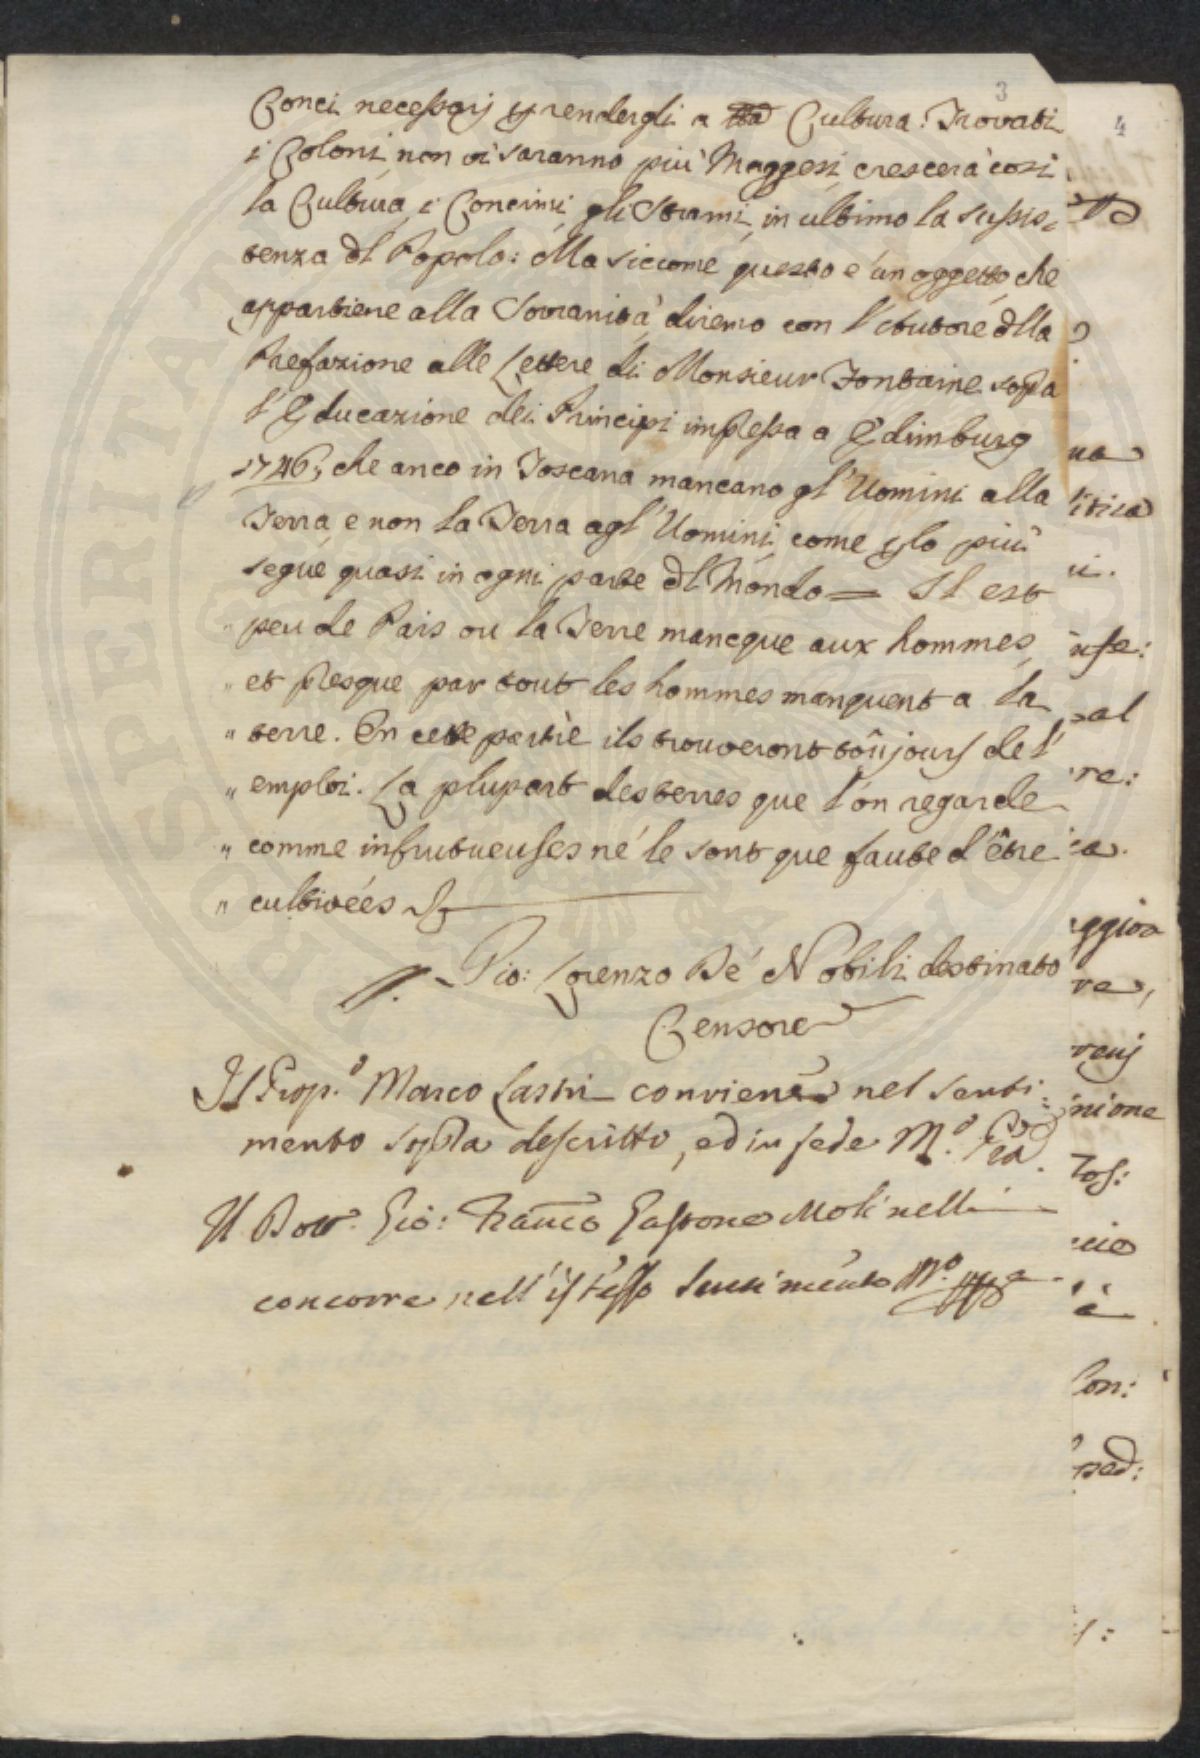 3
4
Conci necessarj p rendergli a Cultura: Trovati
i Coloni non vi saranno più Maggesi crescerà così
la Cultura, i Concimi, gli Strami, in ultimo la sussis=
tenza dl Popolo: Ma siccome questo è un oggetto che
appartiene alla Sovranità, diremo con l'Autore dlla
Prefazione alle Lettere di Monsieur Fontaine sopra
l'Educazione dei Principi impressa a Edimburg
1746, che anco in Toscana mancano gl'Uomini alla
Terra, e non la Terra agl'Uomini, come p lo più
segue quasi in ogni parte dl Mondo = Il est
" peu de Pais ou la Terre mancque aux hommes,
" et presque par tout les hommes manquent a la
" terre. En cette partie ils trouveront toûjours de l'
" emploi. La plupart des terres que l'on regarde
" comme infrutueuses né le sont que faute d'être
" cultivées &
Gio: Lorenzo De' Nobili destinato
Censore
Il Prop.o Marco Lastri conviene nel senti:
mento sopra descritto, ed in fede M.o
Il Dott. Gio: Franco Gastone Molinelli
concorre nell'istesso sentimento M.o pp.a